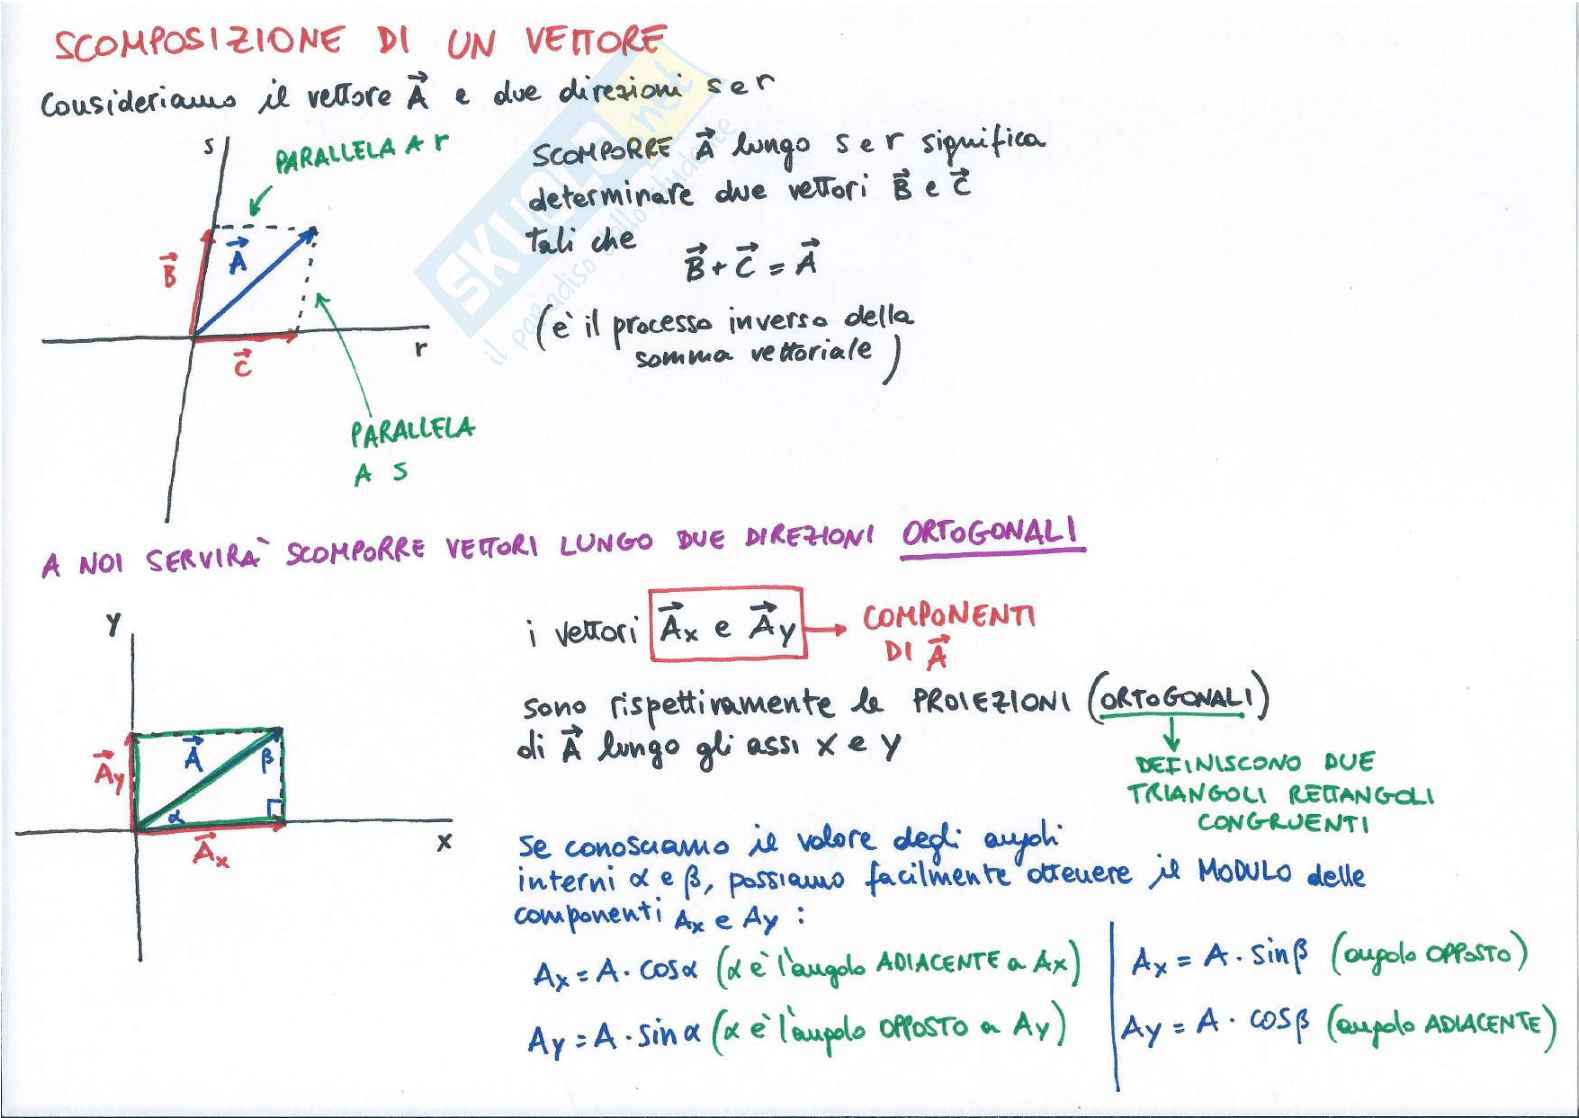 SCOMPOSIZIONE DI UN VETTORE
Consideriamo il vettore A⃗ e due direzioni s e r
s
PARALLELA A r
A⃗
B⃗
C⃗
r
PARALLELA
A S
SCOMPORRE A⃗ lungo s e r significa
determinare due vettori B⃗ e C⃗
tali che
B⃗ + C⃗ = A⃗
(è il processo inverso della
somma vettoriale)
SKUOLA.net
il paradiso dello studente
A NOI SERVIRÀ SCOMPORRE VETTORI LUNGO DUE DIREZIONI ORTOGONALI
y
A⃗y
A⃗
β
α
A⃗x
x
i vettori A⃗x e A⃗y → COMPONENTI
DI A⃗
sono rispettivamente le PROIEZIONI (ORTOGONALI)
di A⃗ lungo gli assi x e y
DEFINISCONO DUE
TRIANGOLI RETTANGOLI
CONGRUENTI
Se conosciamo il valore degli angoli
interni α e β, possiamo facilmente ottenere il MODULO delle
componenti Ax e Ay :
Ax = A · cosα (α è l'angolo ADIACENTE a Ax)
Ay = A · sinα (α è l'angolo OPPOSTO a Ay)
Ax = A · sinβ (angolo OPPOSTO)
Ay = A · cosβ (angolo ADIACENTE)